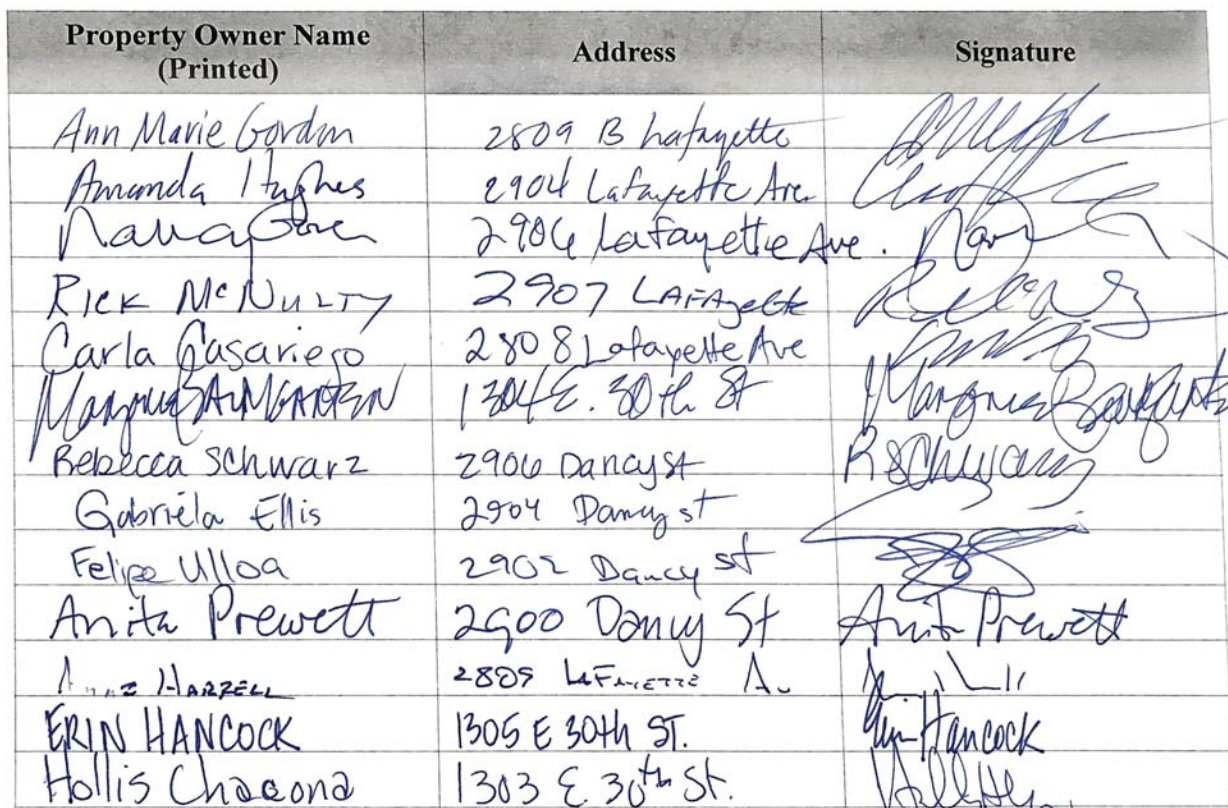 Property Owner Name Address Signature
(Printed)
Ann Marie Gordon 2809 B Lafayette
Amanda Hughes 2904 Lafayette Ave.
2906 Lafayette Ave.
Rick McNulty 2907 LAFAyette
Carla Casariego 2808 Lafayette Ave
BAUMGARTEN 1304 E. 30th St
Rebecca Schwarz 2906 Dancy St RSchwarz
Gabriela Ellis 2904 Dancy st
Felipe Ulloa 2902 Dancy st
Anita Prewett 2900 Dancy St Anita Prewett
HARZELL 2809 LAFAYETTE A.
ERIN HANCOCK 1305 E 30th ST. Erin Hancock
Hollis Chacona 1303 E. 30th St.